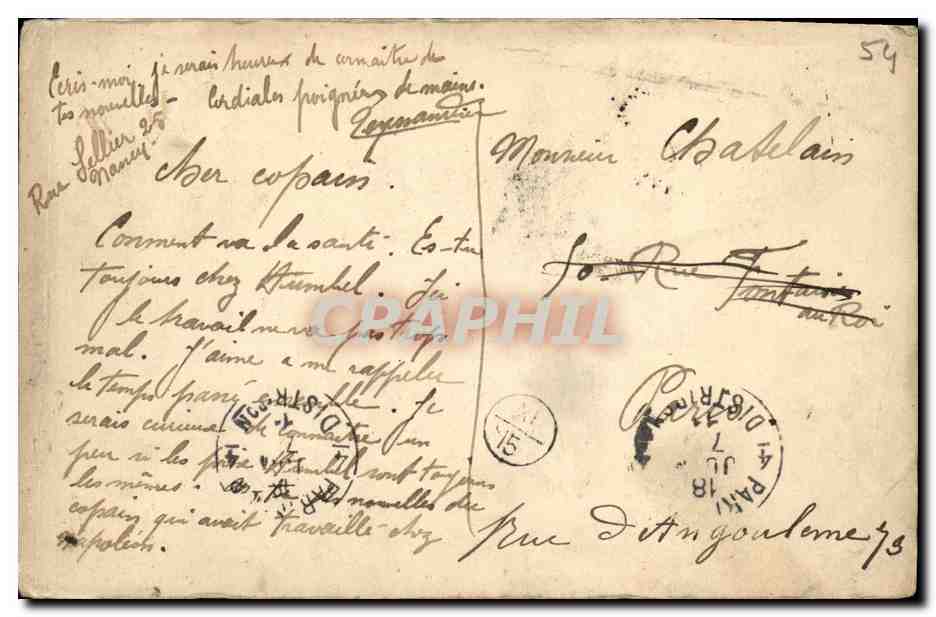 54
Ecris-moi, je serais heureux de connaître de
tes nouvelles - Cordiales poignées de mains.
Rue Sellier 25
Nancy.
cher copain.
Comment va la santé. Es-tu
toujours chez Humbel. Ici
le travail ne va pas trop
mal. J'aime a me rappeler
le temps passé Je
serais curieux de connaître un
peu si les chez Humbel sont toujours
les mêmes. nouvelles du
copain qui avait travaillé chez
napoléon.
Monsieur Chatelain
50 - Rue Fontaine
au Roi
Paris
Rue d'Angoulême 73
XI
15
PARIS
DISTRIBUTION
18
7
4
CPAPHIL